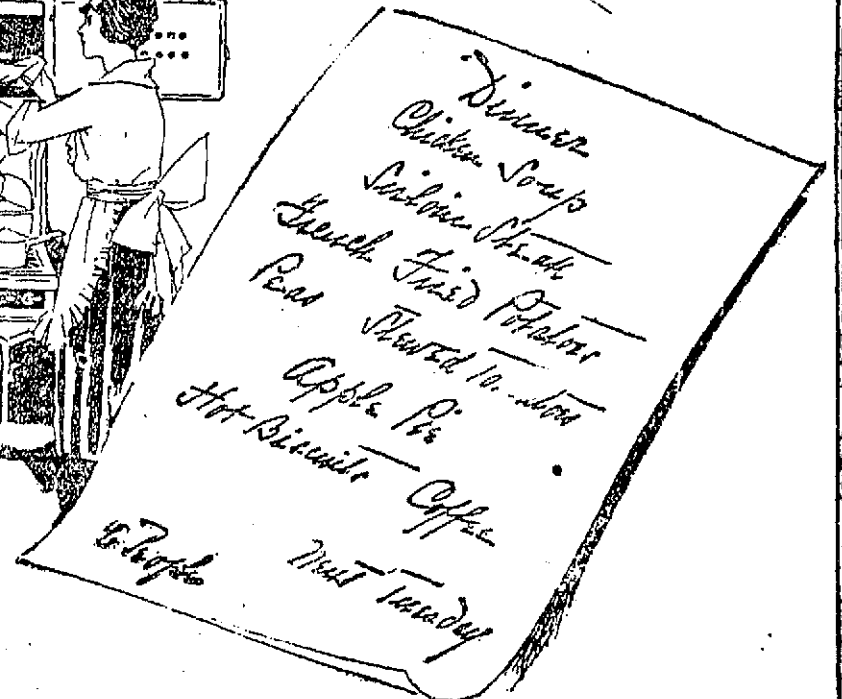 Dinner
Chicken Soup
Sirloin Steak
French Fried Potatoes
Peas Stewed
Apple Pie
Hot Biscuits Coffee
People Next Tuesday